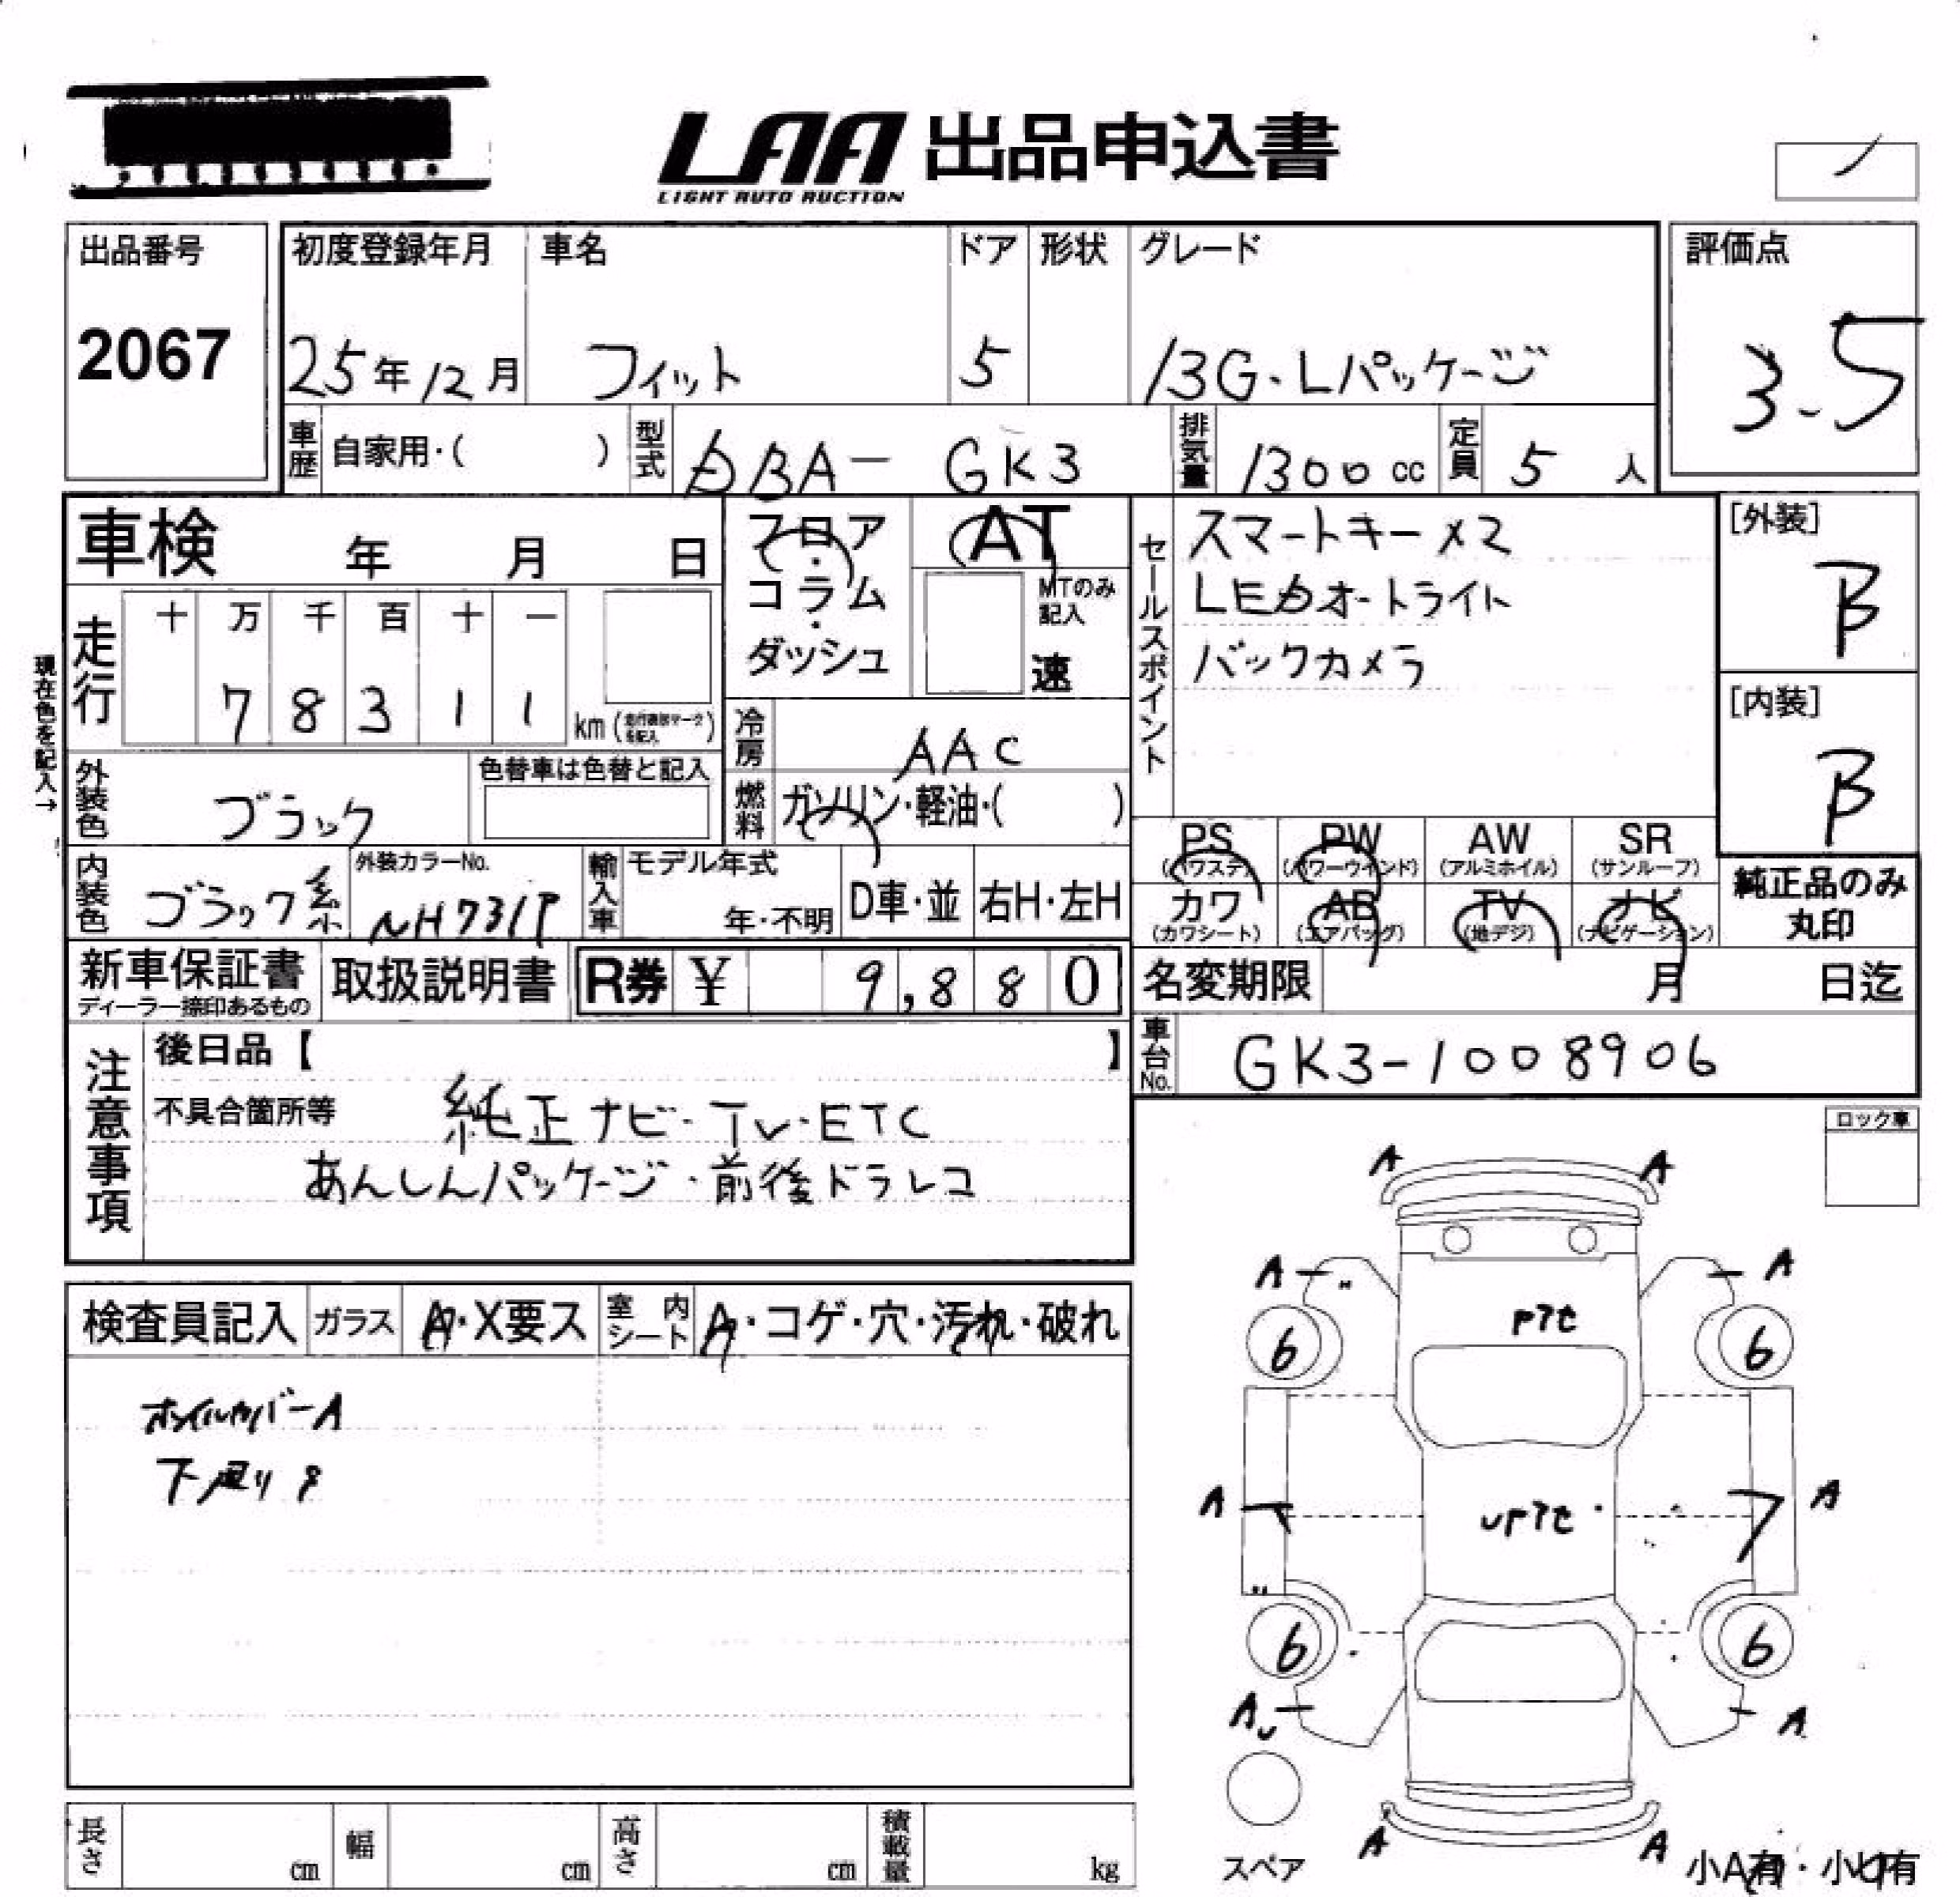 LAA 出品申込書
LIGHT AUTO AUCTION
出品番号
2067
初度登録年月 車名 ドア 形状 グレード
25年12月 フィット 5 13G・Lパッケージ
評価点
3.5
車歴 自家用・( ) 型式 DBA- GK3 排気量 1300cc 定員 5人
車検 年 月 日
フロア・コラム・ダッシュ
AT
MTのみ記入
速
セールスポイント
スマートキー×2
LEDオートライト
バックカメラ
[外装]
B
[内装]
B
現在色を記入→
走行 十 万 千 百 十 一
7 8 3 1 1 km
冷房 AAC
外装色 ブラック 色替車は色替と記入
燃料 ガソリン・軽油・( )
PS (パワステ) PW (パワーウインド) AW (アルミホイル) SR (サンルーフ)
カワ (カワシート) AB (エアバッグ) TV (地デジ) ナビ (ナビゲーション)
純正品のみ丸印
内装色 ブラック系 外装カラーNo. NH731P 輸入車 モデル年式 年・不明 D車・並 右H・左H
新車保証書 ディーラー捺印あるもの 取扱説明書 R券 ¥ 9,880
名変期限 月 日迄
車台No. GK3-1008906
注意事項
後日品【 】
不具合箇所等 純正ナビ・TV・ETC
あんしんパッケージ・前後ドラレコ
ロック車
検査員記入 ガラス A・X要ス 室内シート A・コゲ・穴・汚れ・破れ
ホイルカバーA
下廻りS
A A
A A
6 6
A A
6 6
A A
A A
スペア
小A有・小U有
長さ cm 幅 cm 高さ cm 積載量 kg